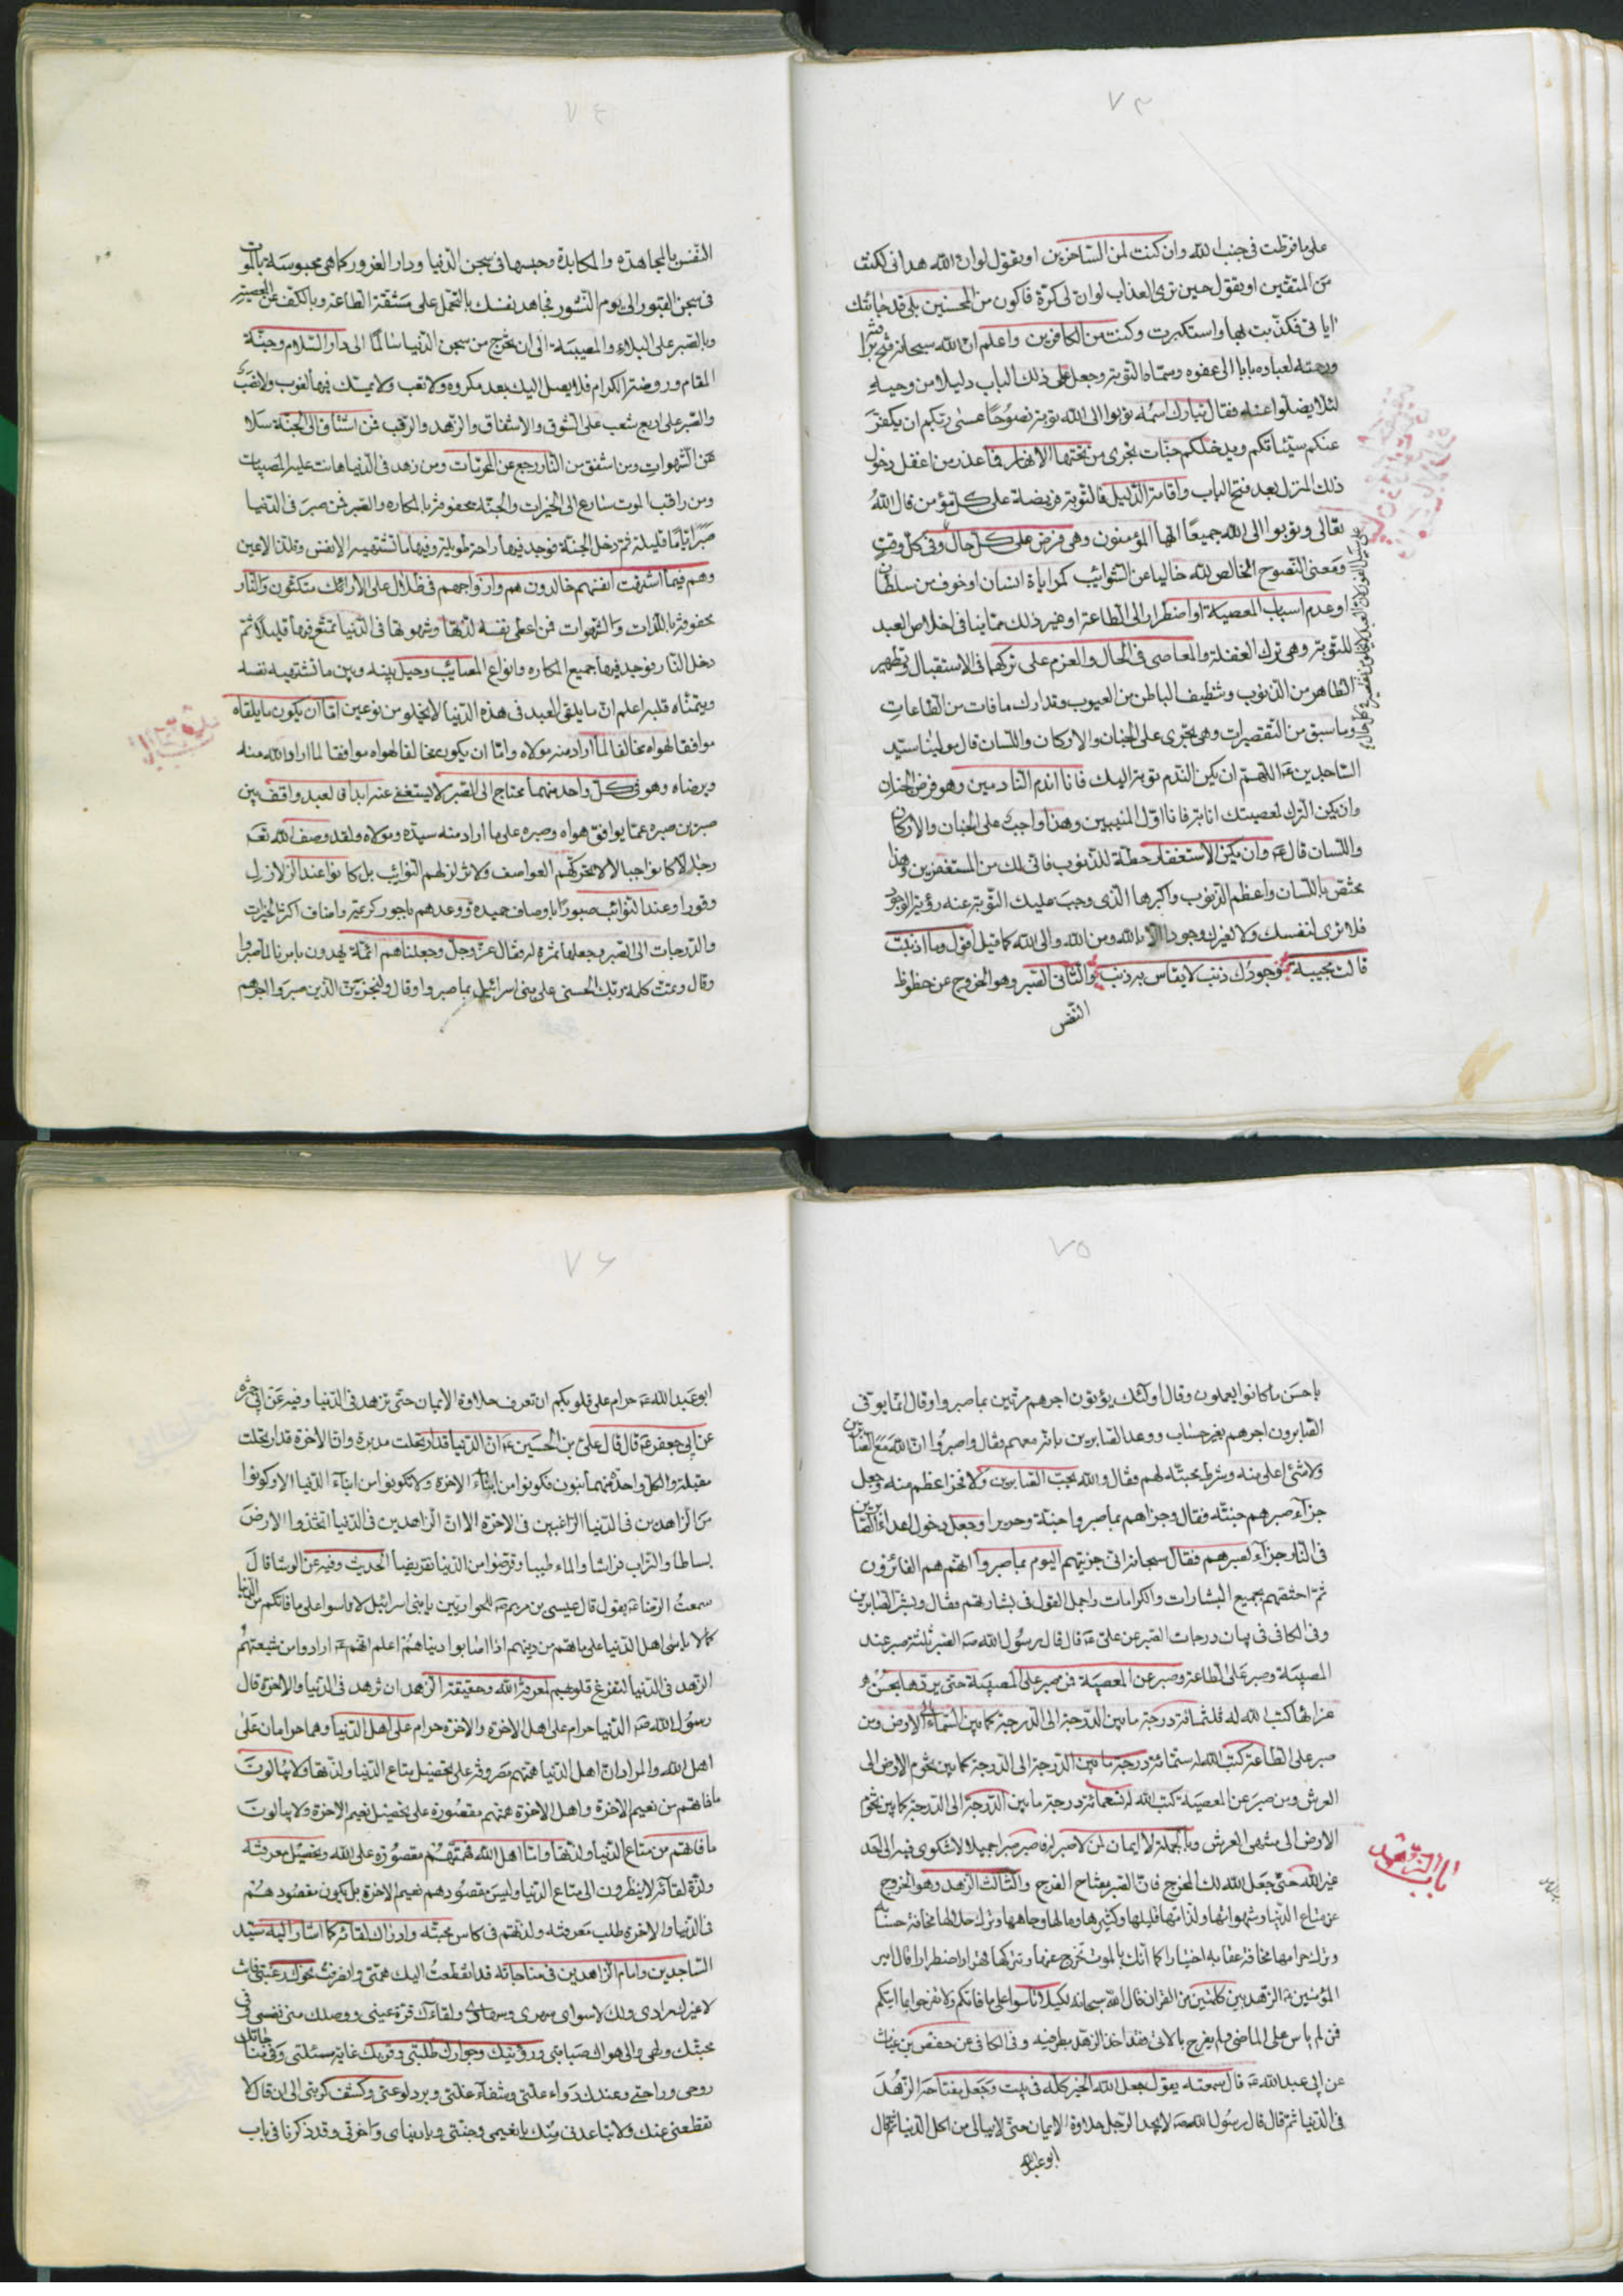 ٧٣
على ما فرطت فى جنب الله وان كنت لمن الساخرين او يقول لو ان الله هدانى لكنت
من المتقين او يقول حين ترى العذاب لو ان لى كرة فاكون من المحسنين بلى قد جائتك
اياتى فكذبت بها واستكبرت وكنت من الكافرين واعلم ان الله سبحانه فتح
ورحمته لعباده بابا الى عفوه وسماه التوبة وجعل على ذلك الباب دليلا من وحيه
لئلا يضلوا عنه فقال تبارك اسمه توبوا الى الله توبة نصوحا عسى ربكم ان يكفر
عنكم سيئاتكم ويدخلكم جنات تجرى من تحتها الانهار فما عذر من اغفل دخول
ذلك المنزل بعد فتح الباب واقامة الدليل فالتوبة فريضة على كل مؤمن قال الله
تعالى وتوبوا الى الله جميعا ايها المؤمنون وهى فرض على كل حال وفى كل وقت
ومعنى النصوح الخالص لله خاليا عن الشوائب كمراياة انسان او خوف من سلطان
او عدم اسباب المعصية او اضطرار الى الطاعة او غير ذلك مما ينافى اخلاص العبد
للتوبة وهى ترك الغفلة والمعاصى فى الحال والعزم على تركها فى الاستقبال وتطهير
الظاهر من الذنوب وتنظيف الباطن من العيوب وتدارك ما فات من الطاعات
وما سبق من التقصيرات وهى تجرى على الجنان والاركان واللسان قال مولينا سيد
الساجدين ع اللهم ان يكن الندم توبة اليك فانا اندم النادمين وهو فرض الجنان
وان يكن الترك لمعصيتك انابة فانا اول المنيبين وهذا واجب على الجنان والاركان
واللسان قال ع وان يكن الاستغفار حطة للذنوب فانى لك من المستغفرين وهذا
مختص باللسان واعظم الذنوب واكبرها الذى وجب عليك التوبة عنه رؤية الوجود
فلا ترى لنفسك ولا لغيرك وجودا الا بالله ومن الله والى الله كما قيل اقول وما اذنبت
قالت مجيبة وجودك ذنب لا يقاس به ذنب والثانى الصبر وهو الخروج عن حظوظ
النفس
٧٤
النفس بالمجاهدة والمكابدة وحبسها فى سجن الدنيا ودار الغرور كما هى محبوسة بالموت
فى سجن القبور الى يوم النشور فجاهد نفسك بالتحمل على مشقة الطاعة وبالكف عن المعصية
وبالصبر على البلاء والمصيبة الى ان يخرج من سجن الدنيا سالما الى دار السلام وجنة
المقام وروضة الكرام فلا يصل اليك بعد مكروه ولا تعب ولا يمسك فيها لغوب ولا نصب
والصبر على اربع شعب على الشوق والاشفاق والزهد والترقب فمن اشتاق الى الجنة سلا
عن الشهوات ومن اشفق من النار رجع عن المحرمات ومن زهد فى الدنيا هانت عليه المصيبات
ومن راقب الموت سارع الى الخيرات والجنة محفوفة بالمكاره والصبر فمن صبر فى الدنيا
صبرا اياما قليلة ثم دخل الجنة فوجد فيها راحة طويلة وفيها ما تشتهيه الانفس وتلذ الاعين
وهم فيما اشتهت انفسهم خالدون هم وازواجهم فى ظلال على الارائك متكئون والنار
محفوفة باللذات والشهوات فمن اعطى نفسه لذتها وشهوتها فى الدنيا تمتع فيها قليلا ثم
دخل النار فوجد فيها جميع المكاره وانواع المصائب وحيل بينه وبين ما تشتهيه نفسه
ويتمناه قلبه اعلم ان ما يلقى العبد فى هذه الدنيا لا يخلو من نوعين اما ان يكون ما يلقاه
موافقا لهواه مخالفا لما اراد منه مولاه واما ان يكون مخالفا لهواه موافقا لما اراد الله منه
ويرضاه وهو فى كل واحد منهما محتاج الى الصبر لا يستغنى عنه ابدا فالعبد واقف بين
صبرين صبره عما يوافق هواه وصبره على ما اراد منه سيده ومولاه ولقد وصف الله تعالى
رجالا كانوا جبالا لا تحركهم العواصف ولا تزلزلهم النوائب بل كانوا عند الزلازل
وقورا وعند النوائب صبورا باوصاف حميدة ووعدهم باجور كريمة واضاف اكثر الخيرات
والدرجات الى الصبر وجعلها ثمرة له فقال عز وجل وجعلناهم ائمة يهدون بامرنا لما صبروا
وقال وتمت كلمة ربك الحسنى على بنى اسرائيل بما صبروا وقال ولنجزين الذين صبروا اجرهم
٧٥
باحسن ما كانوا يعملون وقال اولئك يؤتون اجرهم مرتين بما صبروا وقال انما يوفى
الصابرون اجرهم بغير حساب ووعد الصابرين بانه معهم فقال واصبروا ان الله مع الصابرين
ولا شئ اعلى منه وشرط محبته لهم فقال والله يحب الصابرين ولا فخر اعظم منه وجعل
جزاء صبرهم جنته فقال وجزاهم بما صبروا جنة وحريرا وجعل دخول اعداء الصابرين
فى النار جزاء لصبرهم فقال سبحانه انى جزيتهم اليوم بما صبروا انهم هم الفائزون
ثم اختصهم بجميع البشارات والكرامات واجمل القول فى بشارتهم فقال وبشر الصابرين
وفى الكافى فى بيان درجات الصبر عن على ع قال قال رسول الله ص الصبر ثلثة صبر عند
المصيبة وصبر على الطاعة وصبر عن المعصية فمن صبر على المصيبة حتى يردها بحسن
عزائها كتب الله له ثلثمائة درجة ما بين الدرجة الى الدرجة كما بين السماء الى الارض ومن
صبر على الطاعة كتب الله له ستمائة درجة ما بين الدرجة الى الدرجة كما بين تخوم الارض الى
العرش ومن صبر عن المعصية كتب الله له تسعمائة درجة ما بين الدرجة الى الدرجة كما بين تخوم
الارض الى منتهى العرش وبالجملة لا ايمان لمن لا صبر له فاصبر صبرا جميلا لا شكوى فيه الى احد
غير الله حتى جعل الله لك المخرج فان الصبر مفتاح الفرج والثالث الزهد وهو الخروج
باب الزهد
عن متاع الدنيا وشهواتها ولذاتها قليلها وكثيرها ومالها وجاهها وترك حلالها مخافة حسابه
وترك حرامها مخافة عقابه اختيارا كما انك بالموت تخرج عنها وتتركها قهرا واضطرارا قال امير
المؤمنين ع الزهد بين كلمتين من القران قال الله سبحانه لكيلا تأسوا على ما فاتكم ولا تفرحوا بما اتيكم
فمن لم يأس على الماضى ولم يفرح بالاتى فقد اخذ الزهد بطرفيه وفى الكافى عن حفص بن غياث
عن ابى عبد الله ع قال سمعته يقول جعل الله الخير كله فى بيت وجعل مفتاحه الزهد
فى الدنيا ثم قال قال رسول الله ص لا يجد الرجل حلاوة الايمان حتى لا يبالى من اكل الدنيا ثم قال
ابو عبد الله
٧٦
ابو عبد الله ع حرام على قلوبكم ان تعرف حلاوة الايمان حتى تزهد فى الدنيا وفيه عن ابى حمزه
عن ابى جعفر ع قال قال على بن الحسين ع ان الدنيا قد ارتحلت مدبرة وان الاخرة قد ارتحلت
مقبلة ولكل واحدة منهما بنون فكونوا من ابناء الاخرة ولا تكونوا من ابناء الدنيا الا وكونوا
من الزاهدين فى الدنيا الراغبين فى الاخرة الا ان الزاهدين فى الدنيا اتخذوا الارض
بساطا والتراب فراشا والماء طيبا وقرضوا من الدنيا تقريضا الحديث وفيه عن الوشا قال
سمعت الرضا ع يقول قال عيسى بن مريم ص للحواريين يا بنى اسرائيل لا تاسوا على ما فاتكم من الدنيا
كما لا ياسى اهل الدنيا على ما فاتهم من دينهم اذا اصابوا دنياهم اعلم انهم ع ارادوا من شيعتهم
الزهد فى الدنيا لتفرغ قلوبهم لمعرفة الله وحقيقة الزهد ان تزهد فى الدنيا والاخرة قال
رسول الله ص الدنيا حرام على اهل الاخرة والاخرة حرام على اهل الدنيا وهما حرامان على
اهل الله والمراد ان اهل الدنيا همتهم مصروفة على تحصيل متاع الدنيا ولذتها ولا يبالون
ما فاتهم من نعيم الاخرة واهل الاخرة همتهم مقصورة على تحصيل نعيم الاخرة ولا يبالون
ما فاتهم من متاع الدنيا ولذتها واما اهل الله فهمتهم مقصورة على الله وتحصيل معرفته
ولذة لقائه لا ينظرون الى متاع الدنيا وليس مقصودهم نعيم الاخرة بل يكون مقصودهم
فى الدنيا والاخرة طلب معرفته ولذتهم فى كاس محبته وادراك لقائه كما اشار اليه سيد
الساجدين وامام الزاهدين فى مناجاته قد انقطعت اليك همتى وانصرفت نحوك رغبتى فانت
لا غيرك مرادى ولك لا لسواك سهرى وسهادى ولقاءك قرة عينى ووصلك منى نفسى وفى
محبتك ولهى والى هواك صبابتى ورؤيتك وجوارك طلبتى وقربك غاية مسئلتى وفى مناجاتك
روحى وراحتى وعندك دواء علتى وشفاء غلتى وبرد لوعتى وكشف كربتى الى ان قال لا
تقطعنى عنك ولا تباعدنى منك يا نعيمى وجنتى ويا دنياى واخرتى وقد ذكرنا فى باب